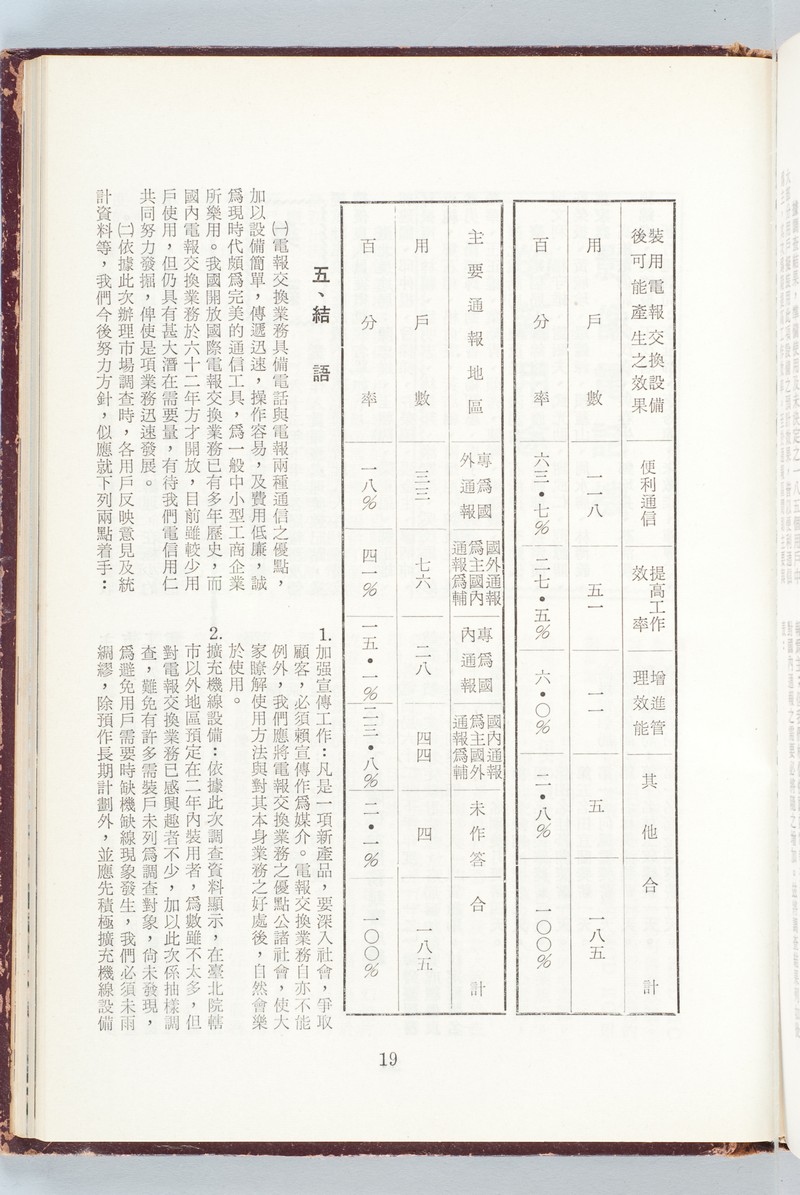 裝用電報交換設備後可能產生之效果　便利通信　提高工作效率　增進管理效能　其他　合計
用戶數　一一八　五一　一一　五　一八五
百分率　六三・七%　二七・五%　六・〇%　二・八%　一〇〇%
主要通報地區　專爲國外通報　國外通報爲主國內通報爲輔　專爲國內通報　國內通報爲主國外通報爲輔　未作答　合計
用戶數　三三　七六　二八　四四　四　一八五
百分率　一八%　四一%　一五・一%　二三・八%　二・一%　一〇〇%
五、結　語
㈠電報交換業務具備電話與電報兩種通信之優點，
加以設備簡單，傳遞迅速，操作容易，及費用低廉，誠
爲現時代頗爲完美的通信工具，爲一般中小型工商企業
所樂用。我國開放國際電報交換業務已有多年歷史，而
國內電報交換業務於六十二年方才開放，目前雖較少用
戶使用，但仍具有甚大潛在需要量，有待我們電信用仁
共同努力發掘，俾使是項業務迅速發展。
㈡依據此次辦理市場調查時，各用戶反映意見及統
計資料等，我們今後努力方針，似應就下列兩點着手：
1.加强宣傳工作：凡是一項新產品，要深入社會，爭取
顧客，必須賴宣傳作爲媒介。電報交換業務自亦不能
例外，我們應將電報交換業務之優點公諸社會，使大
家瞭解使用方法與對其本身業務之好處後，自然會樂
於使用。
2.擴充機線設備：依據此次調查資料顯示，在臺北院轄
市以外地區預定在二年內裝用者，爲數雖不太多，但
對電報交換業務已感興趣者不少，加以此次係抽樣調
查，難免有許多需裝戶未列爲調查對象，尙未發現，
爲避免用戶需要時缺機缺線現象發生，我們必須未雨
綢繆，除預作長期計劃外，並應先積極擴充機線設備
19